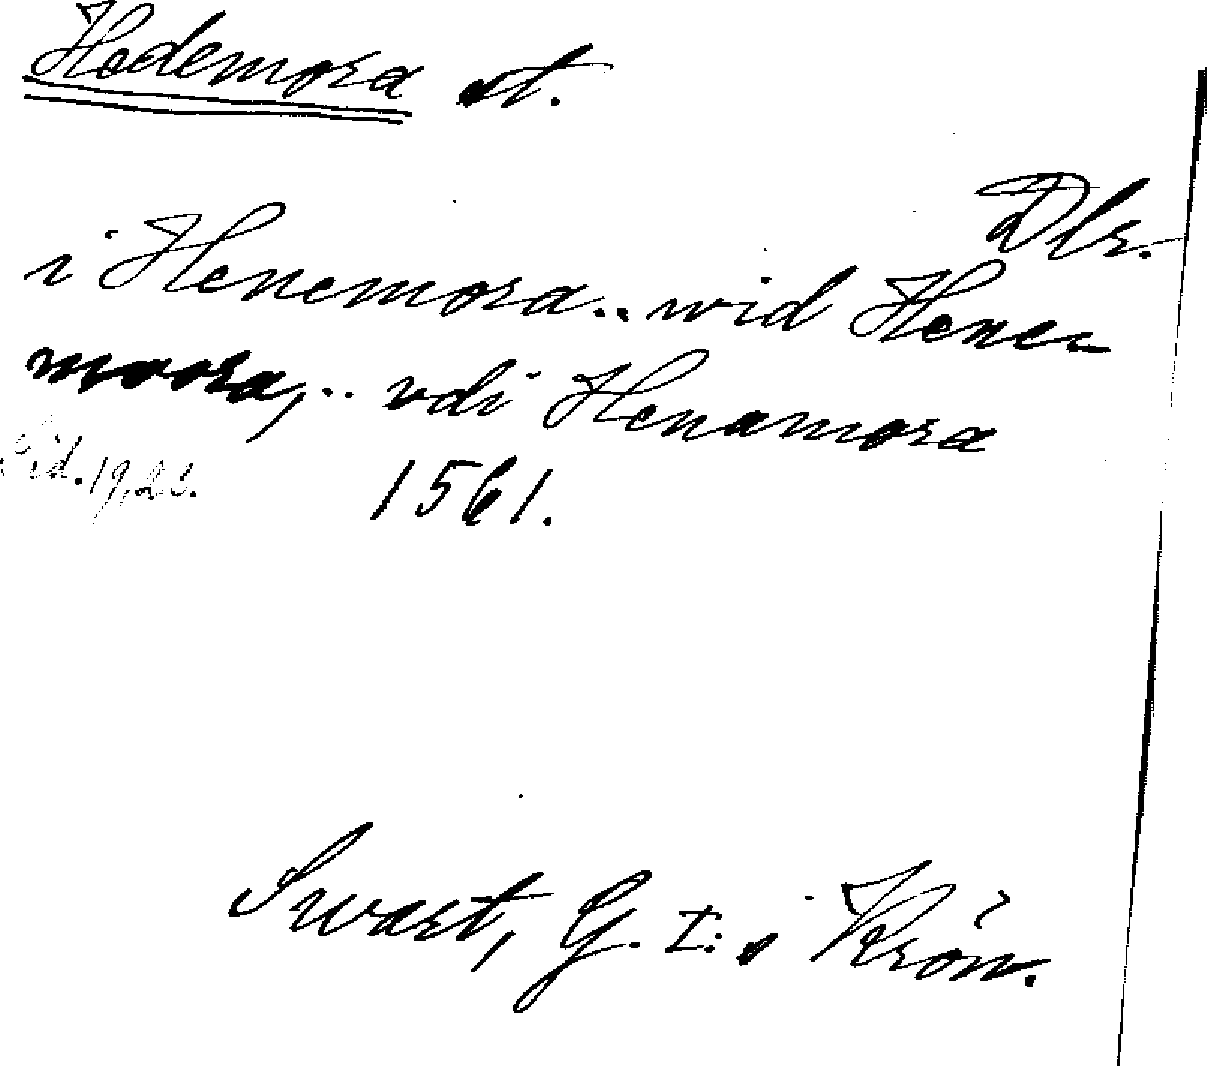 Hedemora st.
Dlr.
i Henemora.. wid Hene-
moora,.. vdi Henamora
Sid. 19, 21.
1561.
Swart, G. I:s Krön.